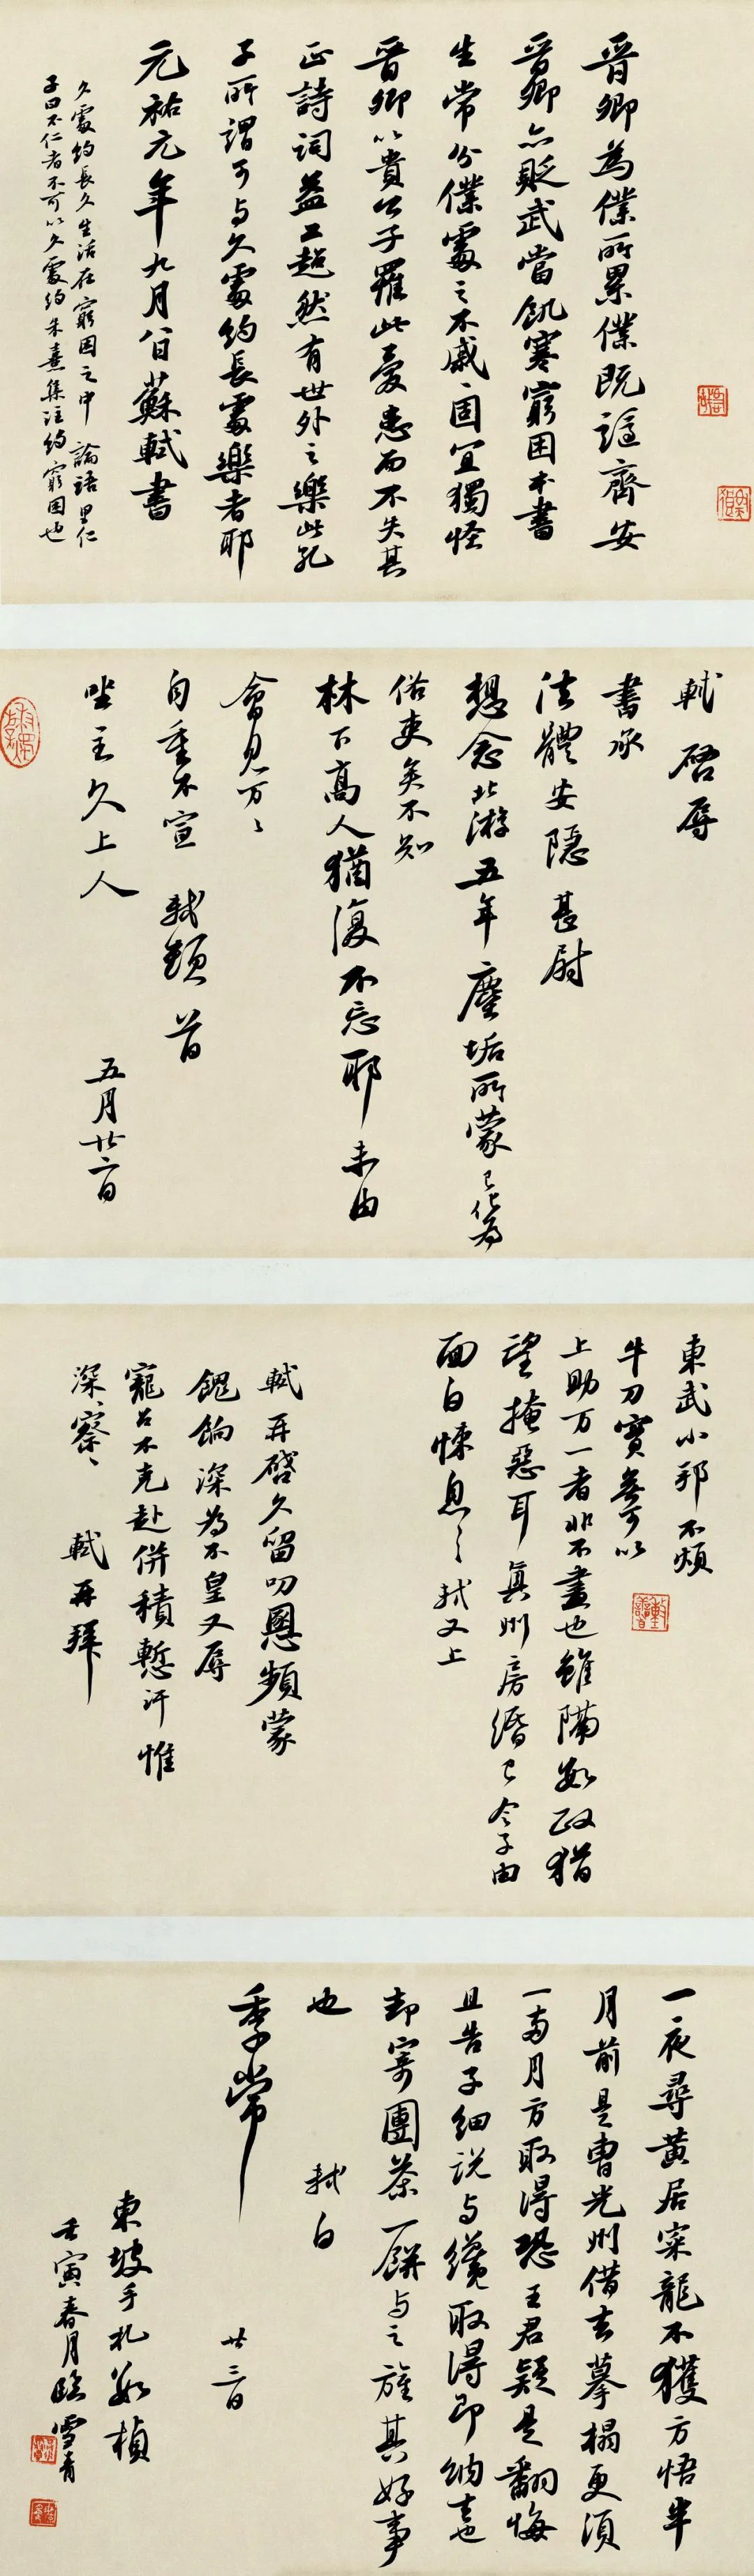 晉卿為僕所累僕既謫齊安
晉卿亦貶武當飢寒窮困本書
生常分僕處之不戚戚固宜獨怪
晉卿以貴公子罹此憂患而不失其
正詩詞益工超然有世外之樂此孔
子所謂可与久處約長處樂者耶
元祐元年九月八日蘇軾書
久處約長久生活在窮困之中 論語里仁
子曰不仁者不可以久處約朱熹集注約窮困也
軾啓辱
書承
法體安隱甚尉
想念北游五年塵垢所蒙已化為
俗吏矣不知
林下高人猶復不忘耶未由
會見万万
自重不宣 軾頓首
坐主久上人 五月廿二日
東武小邦不煩
牛刀實無可以
上助万一者非不盡也雖隔數政猶
望掩惡耳真州房緡已令子由
面白悚息悚息軾又上
軾再啓久留叨恩頻蒙
餽餉深為不皇又辱
寵召不克赴併積慙汗惟
深察深察 軾再拜
一夜尋黃居寀龍不獲方悟半
月前是曹光州借去摹榻更須
一兩月方取得恐王君疑是翻悔
且告子細說与纔取得即納去也
却寄團茶一餅与之旌其好事
也 軾白
季常 廿三日
東坡手札數楨
壬寅春月臨 雪青